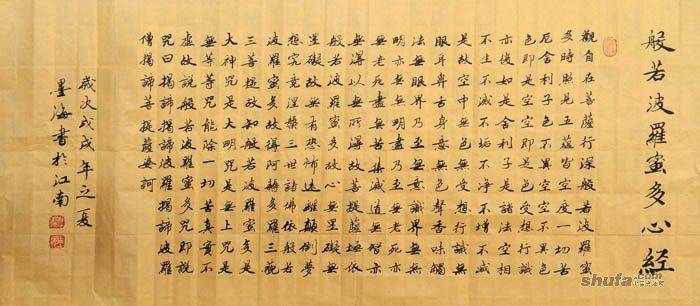 般若波羅蜜多心經
觀自在菩薩行深般若波羅蜜
多時照見五蘊皆空度一切苦
厄舍利子色不異空空不異色
色即是空空即是色受想行識
亦復如是舍利子是諸法空相
不生不滅不垢不淨不增不減
是故空中無色無受想行識無
眼耳鼻舌身意無色聲香味觸
法無眼界乃至無意識界無無
明亦無無明盡乃至無老死亦
無老死盡無苦集滅道無智亦
無得以無所得故菩提薩埵依
般若波羅蜜多故心無罣礙無
罣礙故無有恐怖遠離顛倒夢
想究竟涅槃三世諸佛依般若
波羅蜜多故得阿耨多羅三藐
三菩提故知般若波羅蜜多是
大神咒是大明咒是無上咒是
無等等咒能除一切苦真實不
虛故說般若波羅蜜多咒即說
咒曰揭諦揭諦波羅揭諦波羅
僧揭諦菩提薩婆訶
歲次戊戌年之夏
墨海書於江南
shufa.com